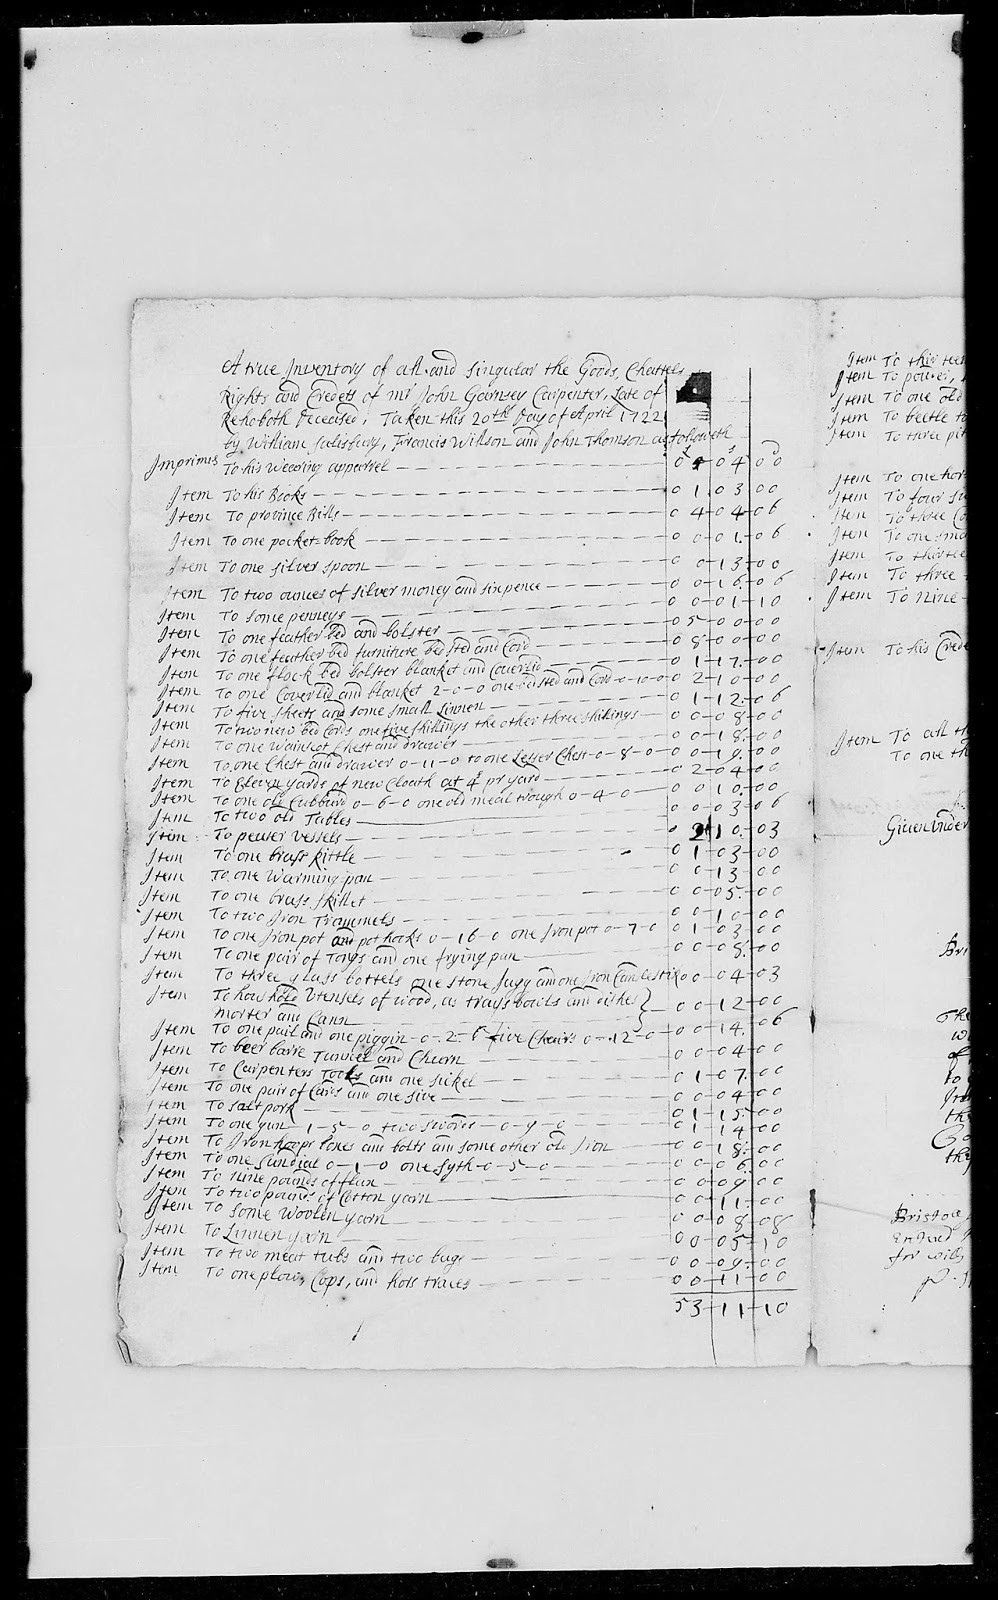 A true Inventory of all and singular the Goods, Chattels
Rights and Credets of mr John Gearnsey Carpenter, Late of
Rehoboth Deceased, Taken this 20th Day of April 1722
by William Salesbury, Francis Willson and John Thomson as followeth
Imprimes To his wearing apperrel 04 00
Item To his Books 0 1 03 00
Item To province Bills 0 4 04 06
Item To one pocket=book 0 0 01 06
Item To one silver spoon 0 0 13 00
Item To two ounces of silver money and sixpence 0 0 16 06
Item To some penneys 0 0 01 10
Item To one feather bed and bolster 0 5 00 00
Item To one feather bed furniture bedsted and Cord 0 8 00 00
Item To one flock bed bolster blanket and coverlid 0 1 17 00
Item To one Coverlid and blanket 2-0-0 one bedsted and Cord 0-10-0 0 2 10 00
Item To five sheets and some small Linnen 0 1 12 06
Item To two new bed Cords one five shillings the other three shillings 0 0 08 00
Item To one wainscot Chest and drawer 0 0 18 00
Item To one Chest and drawer 0-11-0 to one Lesser Chest 0-8-0 0 0 19 00
Item To Eleven yards of new Cloath at 4s pr yard 0 2 04 00
Item To one old Cubburd 0-6-0 one old meal trough 0-4-0 0 0 10 00
Item To two old Tables 0 0 03 06
Item To pewter vessels 0 2 10 03
Item To one brass kittle 0 1 03 00
Item To one warming pan 0 0 13 00
Item To one brass skillet 0 0 05 00
Item To two Iron Trammels 0 0 10 00
Item To one Iron pot and pot hooks 0-16-0 one Iron pot 0-7-0 0 1 03 00
Item To one pair of Tongs and one frying pan 0 0 08 00
Item To three glass bottels one stone Jugg and one Iron Candlestik 0 0 04 03
Item To hous hold Utensels of wood, as trays bowls and dishes
morter and Cann 0 0 12 00
Item To one pail and one piggin 0-2-6 five Chairs 0-12-0 0 0 14 06
Item To beer barre Tunnel and Churn 0 0 04 00
Item To Carpenters Tools and one sickel 0 1 07 00
Item To one pair of Cards and one sive 0 0 04 00
Item To salt pork 0 1 15 00
Item To one gun 1-5-0 two swords 0-9-0 0 1 14 00
Item To Iron hoops and bolts and some other old Iron 0 0 18 00
Item To one Sundial 0-1-0 one Syth 0-5-0 0 0 06 00
Item To nine pounds of flax 0 0 09 00
Item To two pounds of Cotton yarn 0 0 11 00
Item To some Woolen yarn 0 0 08 08
Item To Linnen yarn 0 0 05 10
Item To two meat tubs and two bags 0 0 09 00
Item To one plow, Cops, and hors traces 0 0 11 00
53 11 10
Item To thirteen
Item To
Item To one old
Item To beetle
Item To three
Item To one
Item To four
Item To three
Item To one
Item To thirtee
Item To three
Item To Nine
Item To his Crede
Item To all th
To one th
Given Under
Bri
the
to
the
Bristol
for